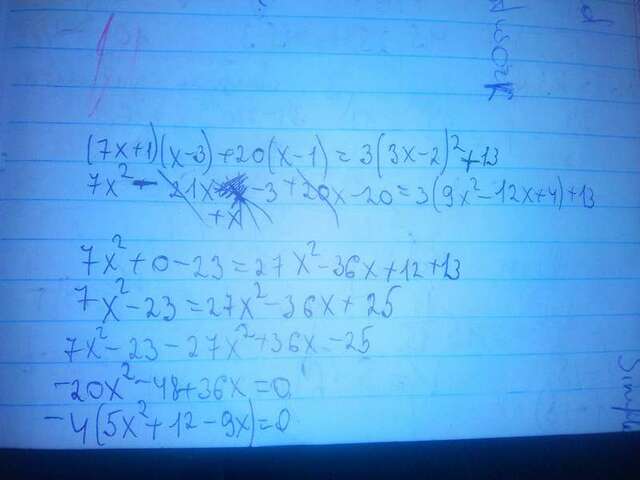 d
Nwosk
(7x+1)(x-3)+20(x-1)=3(3x-2)²+13
7x²-21x-3+20x-20=3(9x²-12x+4)+13
+x
7x²+0-23=27x²-36x+12+13
7x²-23=27x²-36x+25
7x²-23-27x²+36x-25
-20x²-48+36x=0
-4(5x²+12-9x)=0
Simple